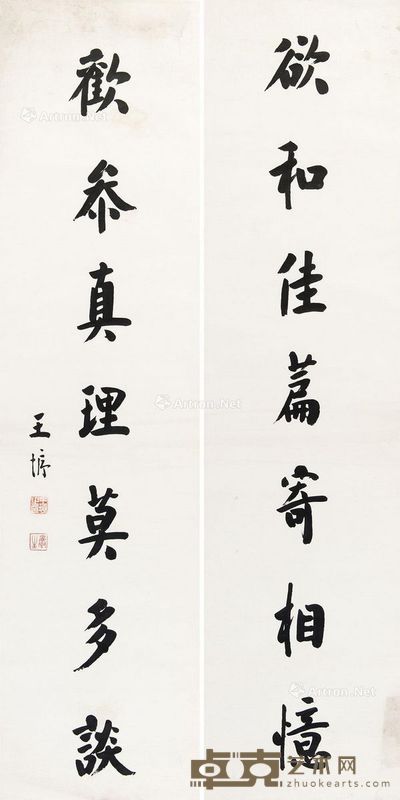 欲和佳篇寄相憶
歡參真理莫多談
王壻
Artron.Net
Artron.Net
Artron.Net
卓克艺术网
zhuokearts.com